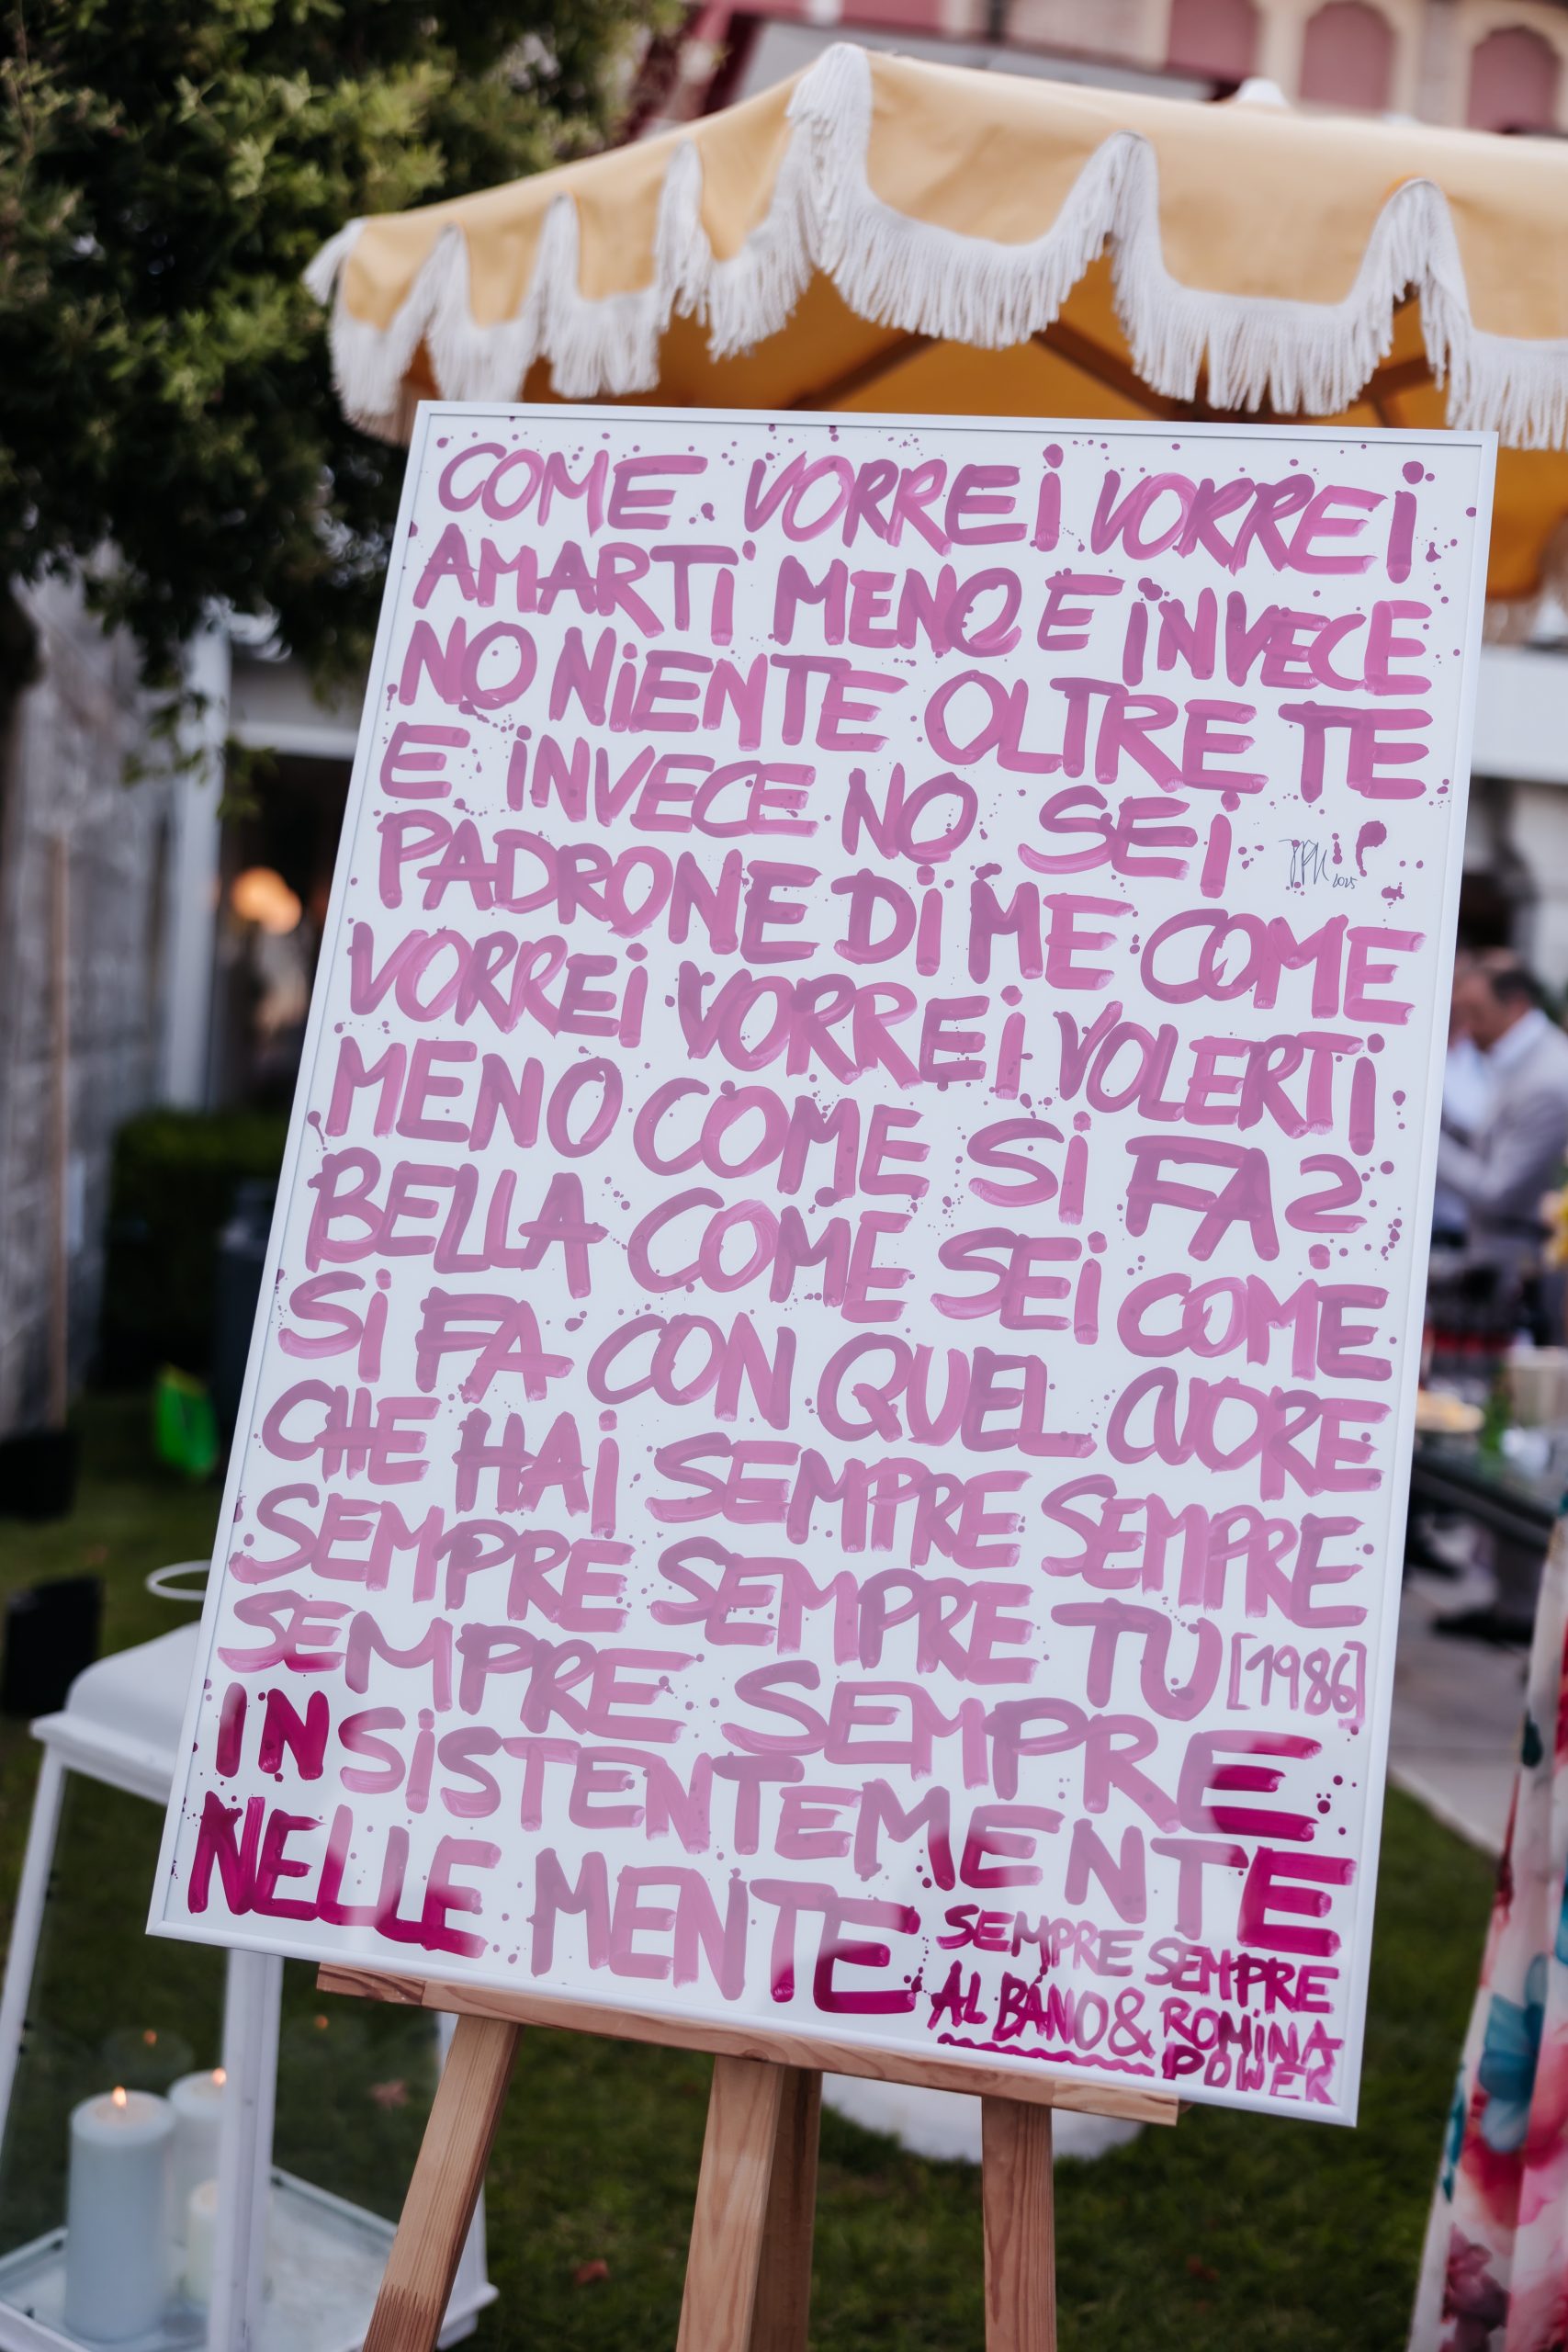 COME VORREI VORREI
AMARTI MENO E INVECE
NO NIENTE OLTRE TE
E INVECE NO SEI
2025
PADRONE DI ME COME
VORREI VORREI VOLERTI
MENO COME SI FA?
BELLA COME SEI COME
SI FA CON QUEL CUORE
CHE HAI SEMPRE SEMPRE
SEMPRE SEMPRE TU [1986]
SEMPRE SEMPRE
INSISTENTEMENTE
NELLE MENTE
SEMPRE SEMPRE
AL BANO & ROMINA
POWER